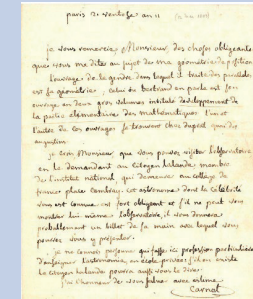 paris 21 ventose an 11
je vous remercie, Monsieur, des choses obligeantes
que vous me dites au sujet de ma géométrie de position
l'ouvrage de la gendre dans lequel il traite des paralleles,
est sa géométrie, celui de bertrand en parle est son
ouvrage en deux gros volumes intitulé développement de
la partie élémentaire des mathématiques l'un et
l'autre de ces ouvrages se trouvent chez duprat quai des
augustins.
je crois Monsieur que vous pouvez visiter l'observatoire
en le demandant au Citoyen Lalande membre
de l'institut national qui demeure au collège de
france place Cambray. Cet astronome dont la célébrité
vous est connue est fort obligeant et s'il ne peut vous
montrer lui même l'observatoire, il vous donnera
probablement un billet de sa main avec lequel vous
pourrez vous y présenter.
je ne connois personne qui fasse ici profession particulière
d'enseigner l'astronomie, ni école privée; s'il en existe
le Citoyen Lalande pourra aussi vous le dire.
j'ai l'honneur de vous saluer avec estime
Carnot